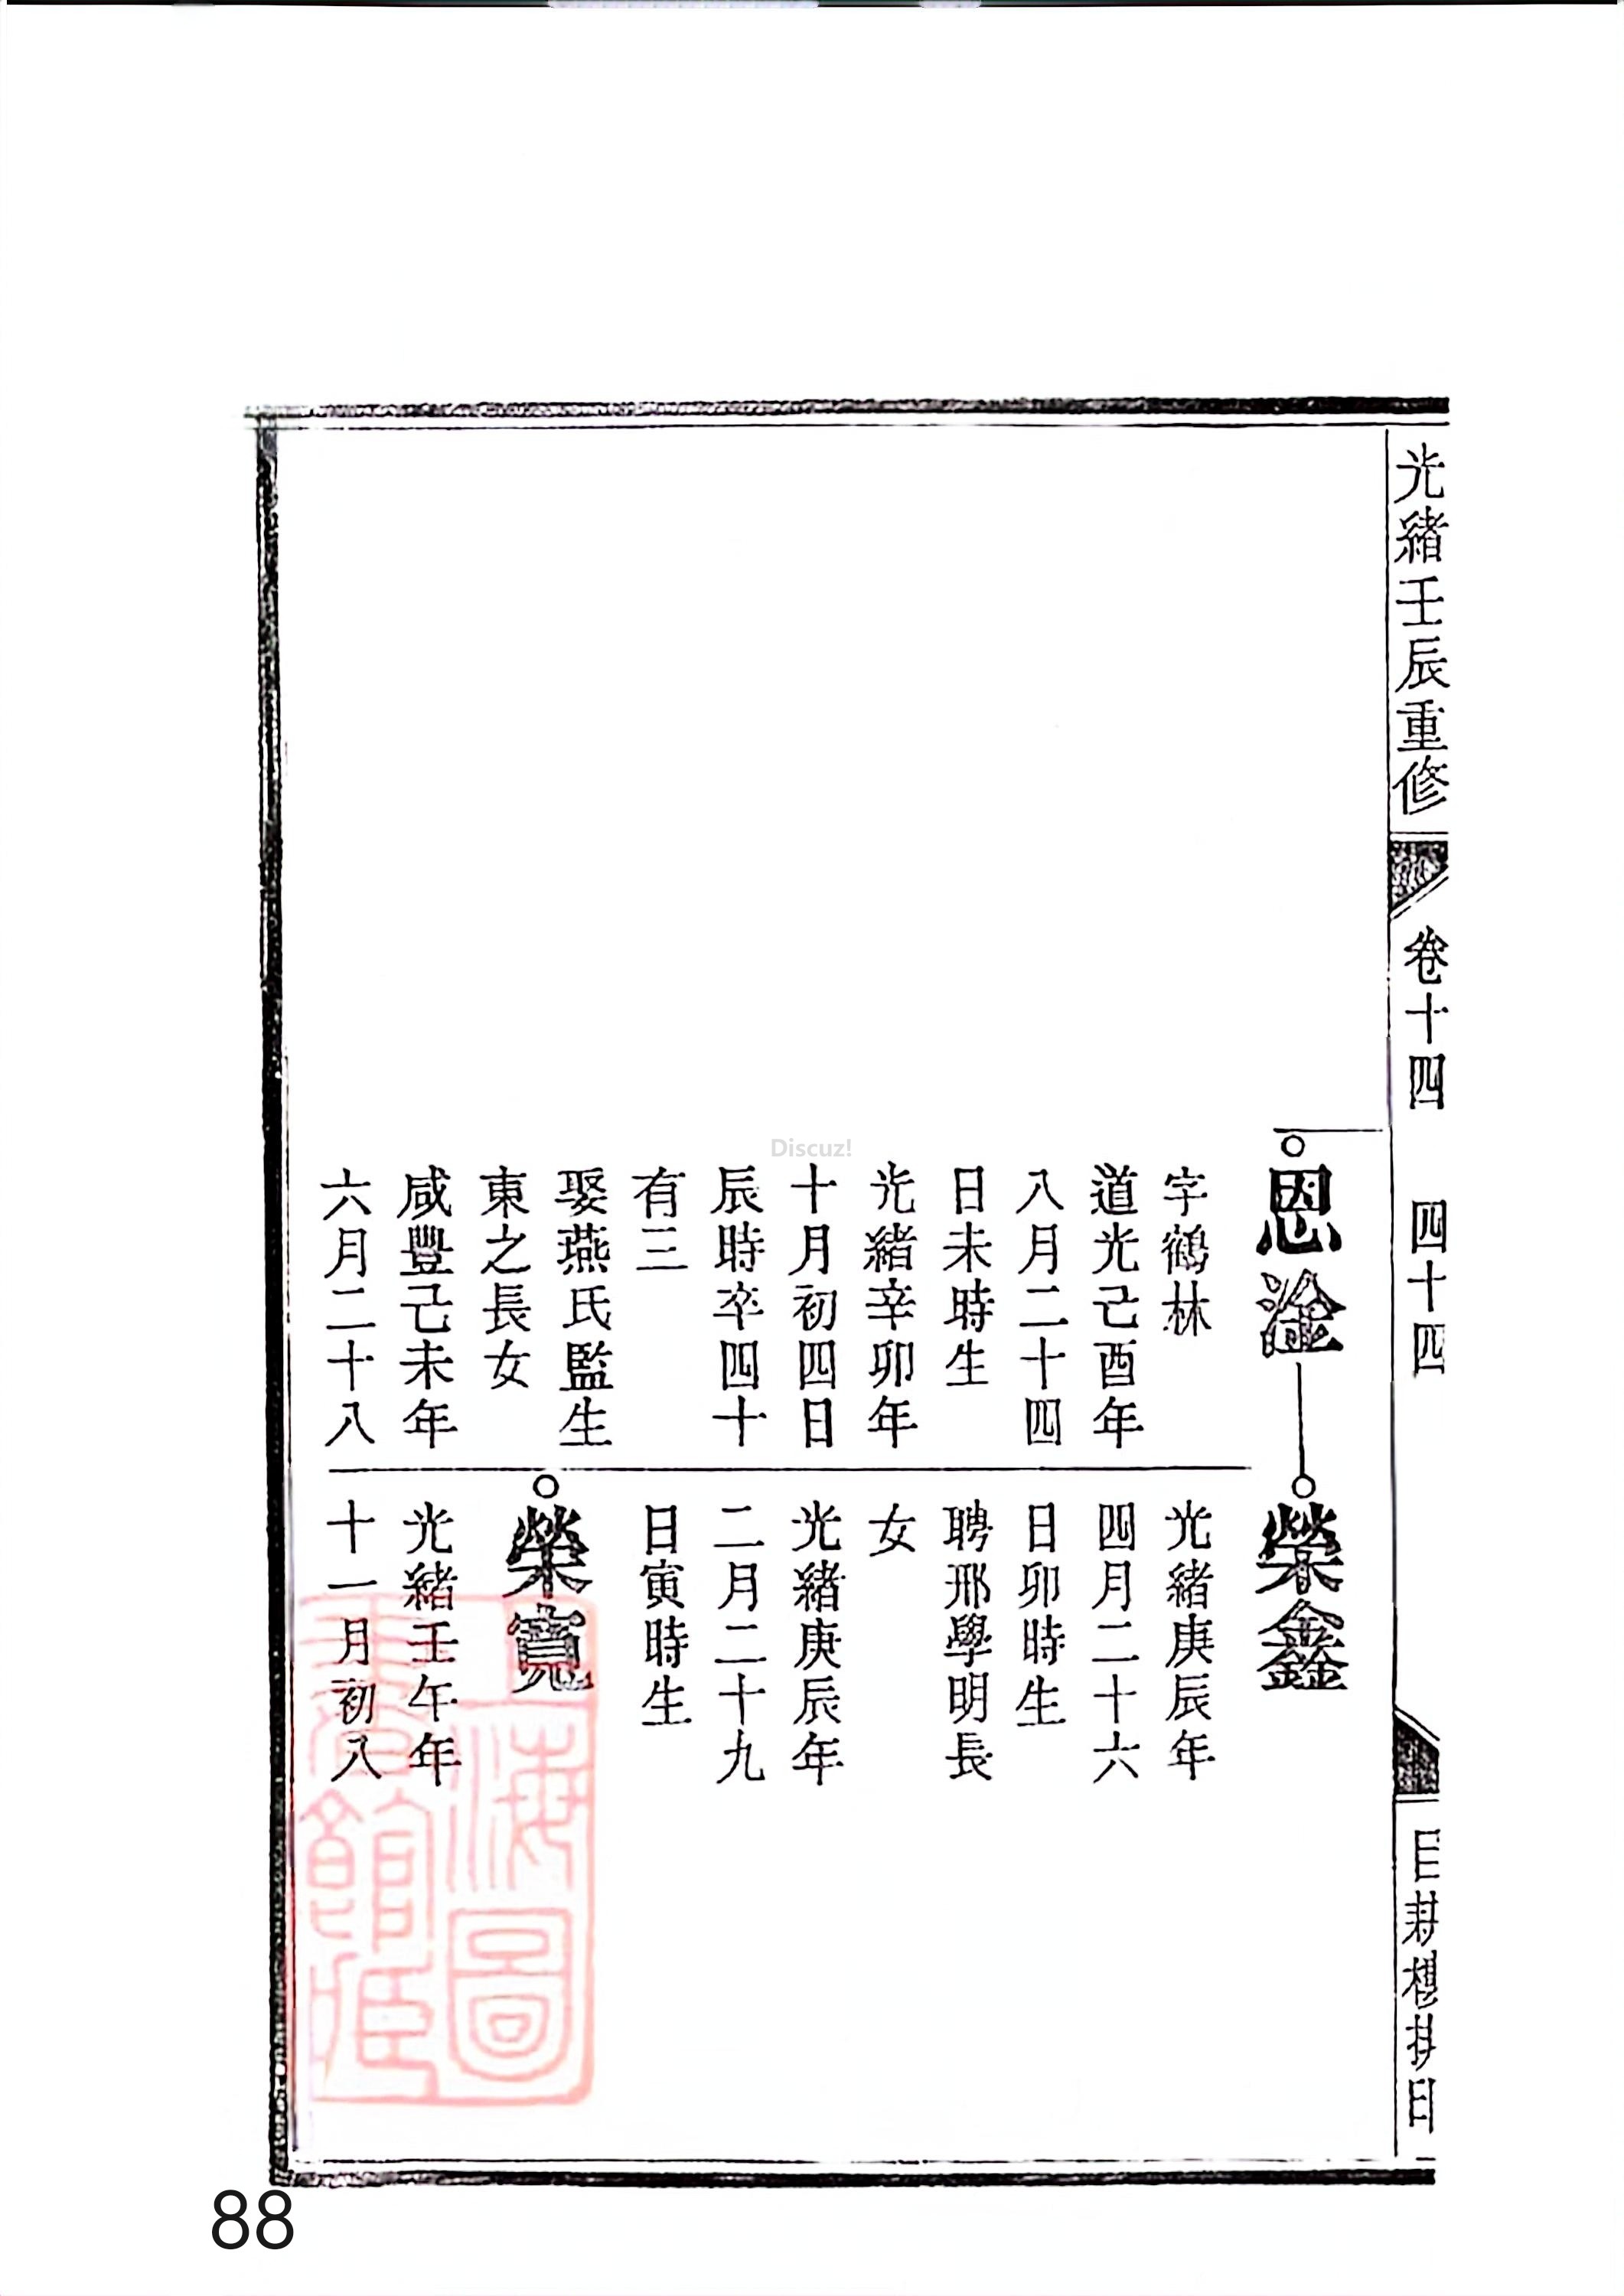 光緒壬辰重修
卷十四
四十四
恩淦
字鶴林
道光己酉年
八月二十四
日未時生
光緒辛卯年
十月初四日
辰時卒四十
有三
娶燕氏監生
東之長女
咸豐己未年
六月二十八
榮鑫
光緒庚辰年
四月二十六
日卯時生
聘邢學明長
女
光緒庚辰年
二月二十九
日寅時生
榮寬
光緒壬午年
十一月初八
Discuz!
88